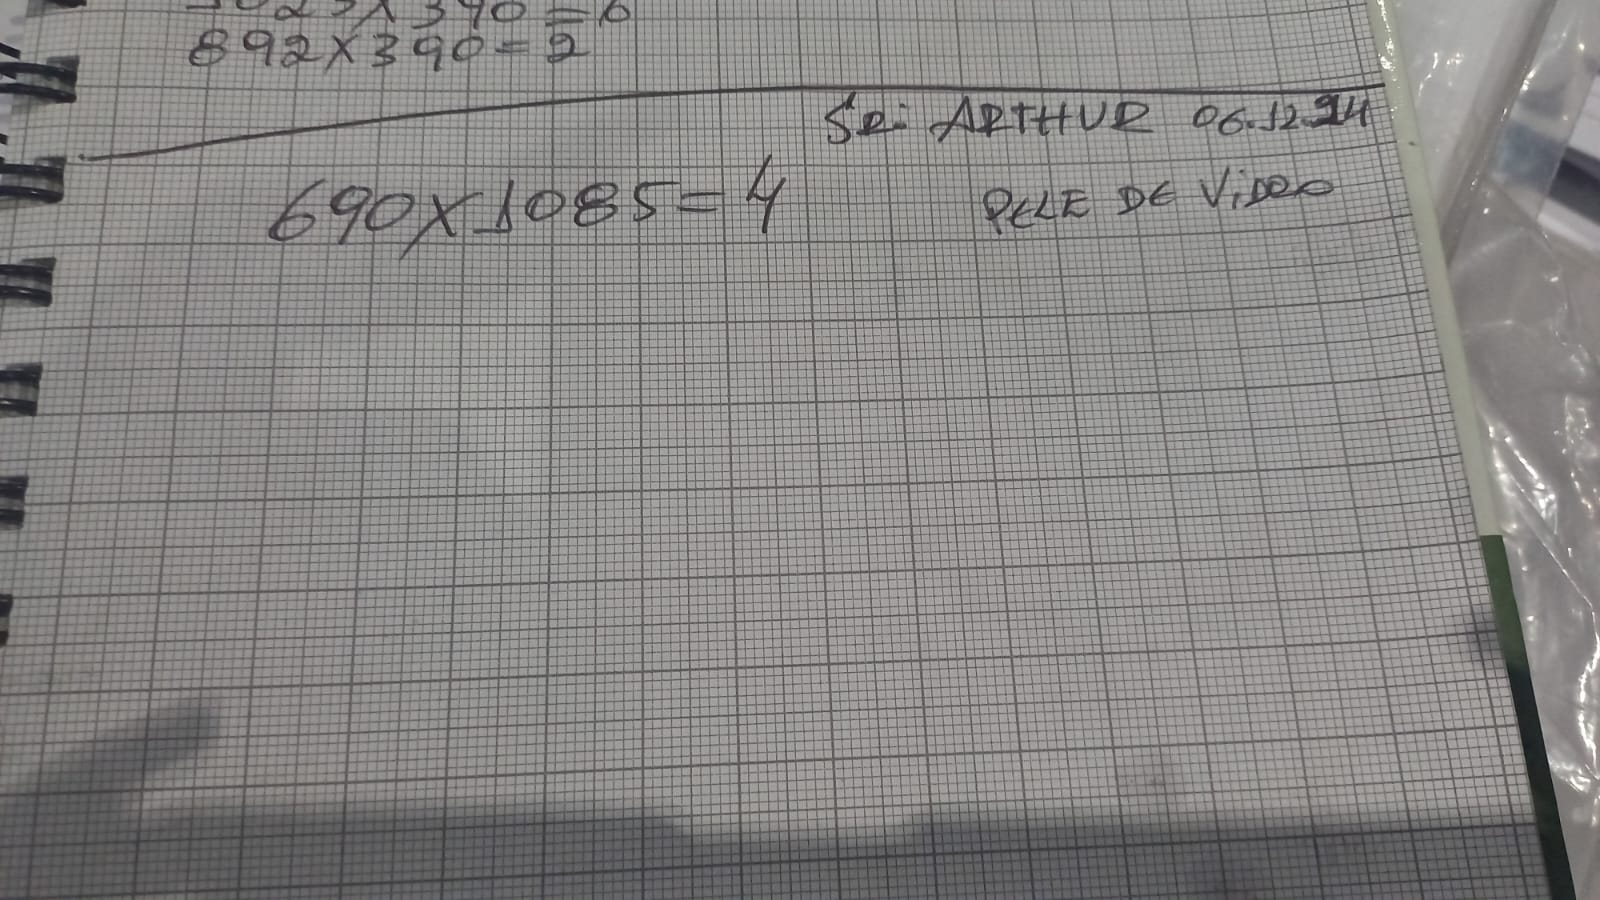 892x390=2
SR: ARTHUR 06.12.24
690x1085=4 PELE DE VIDRO